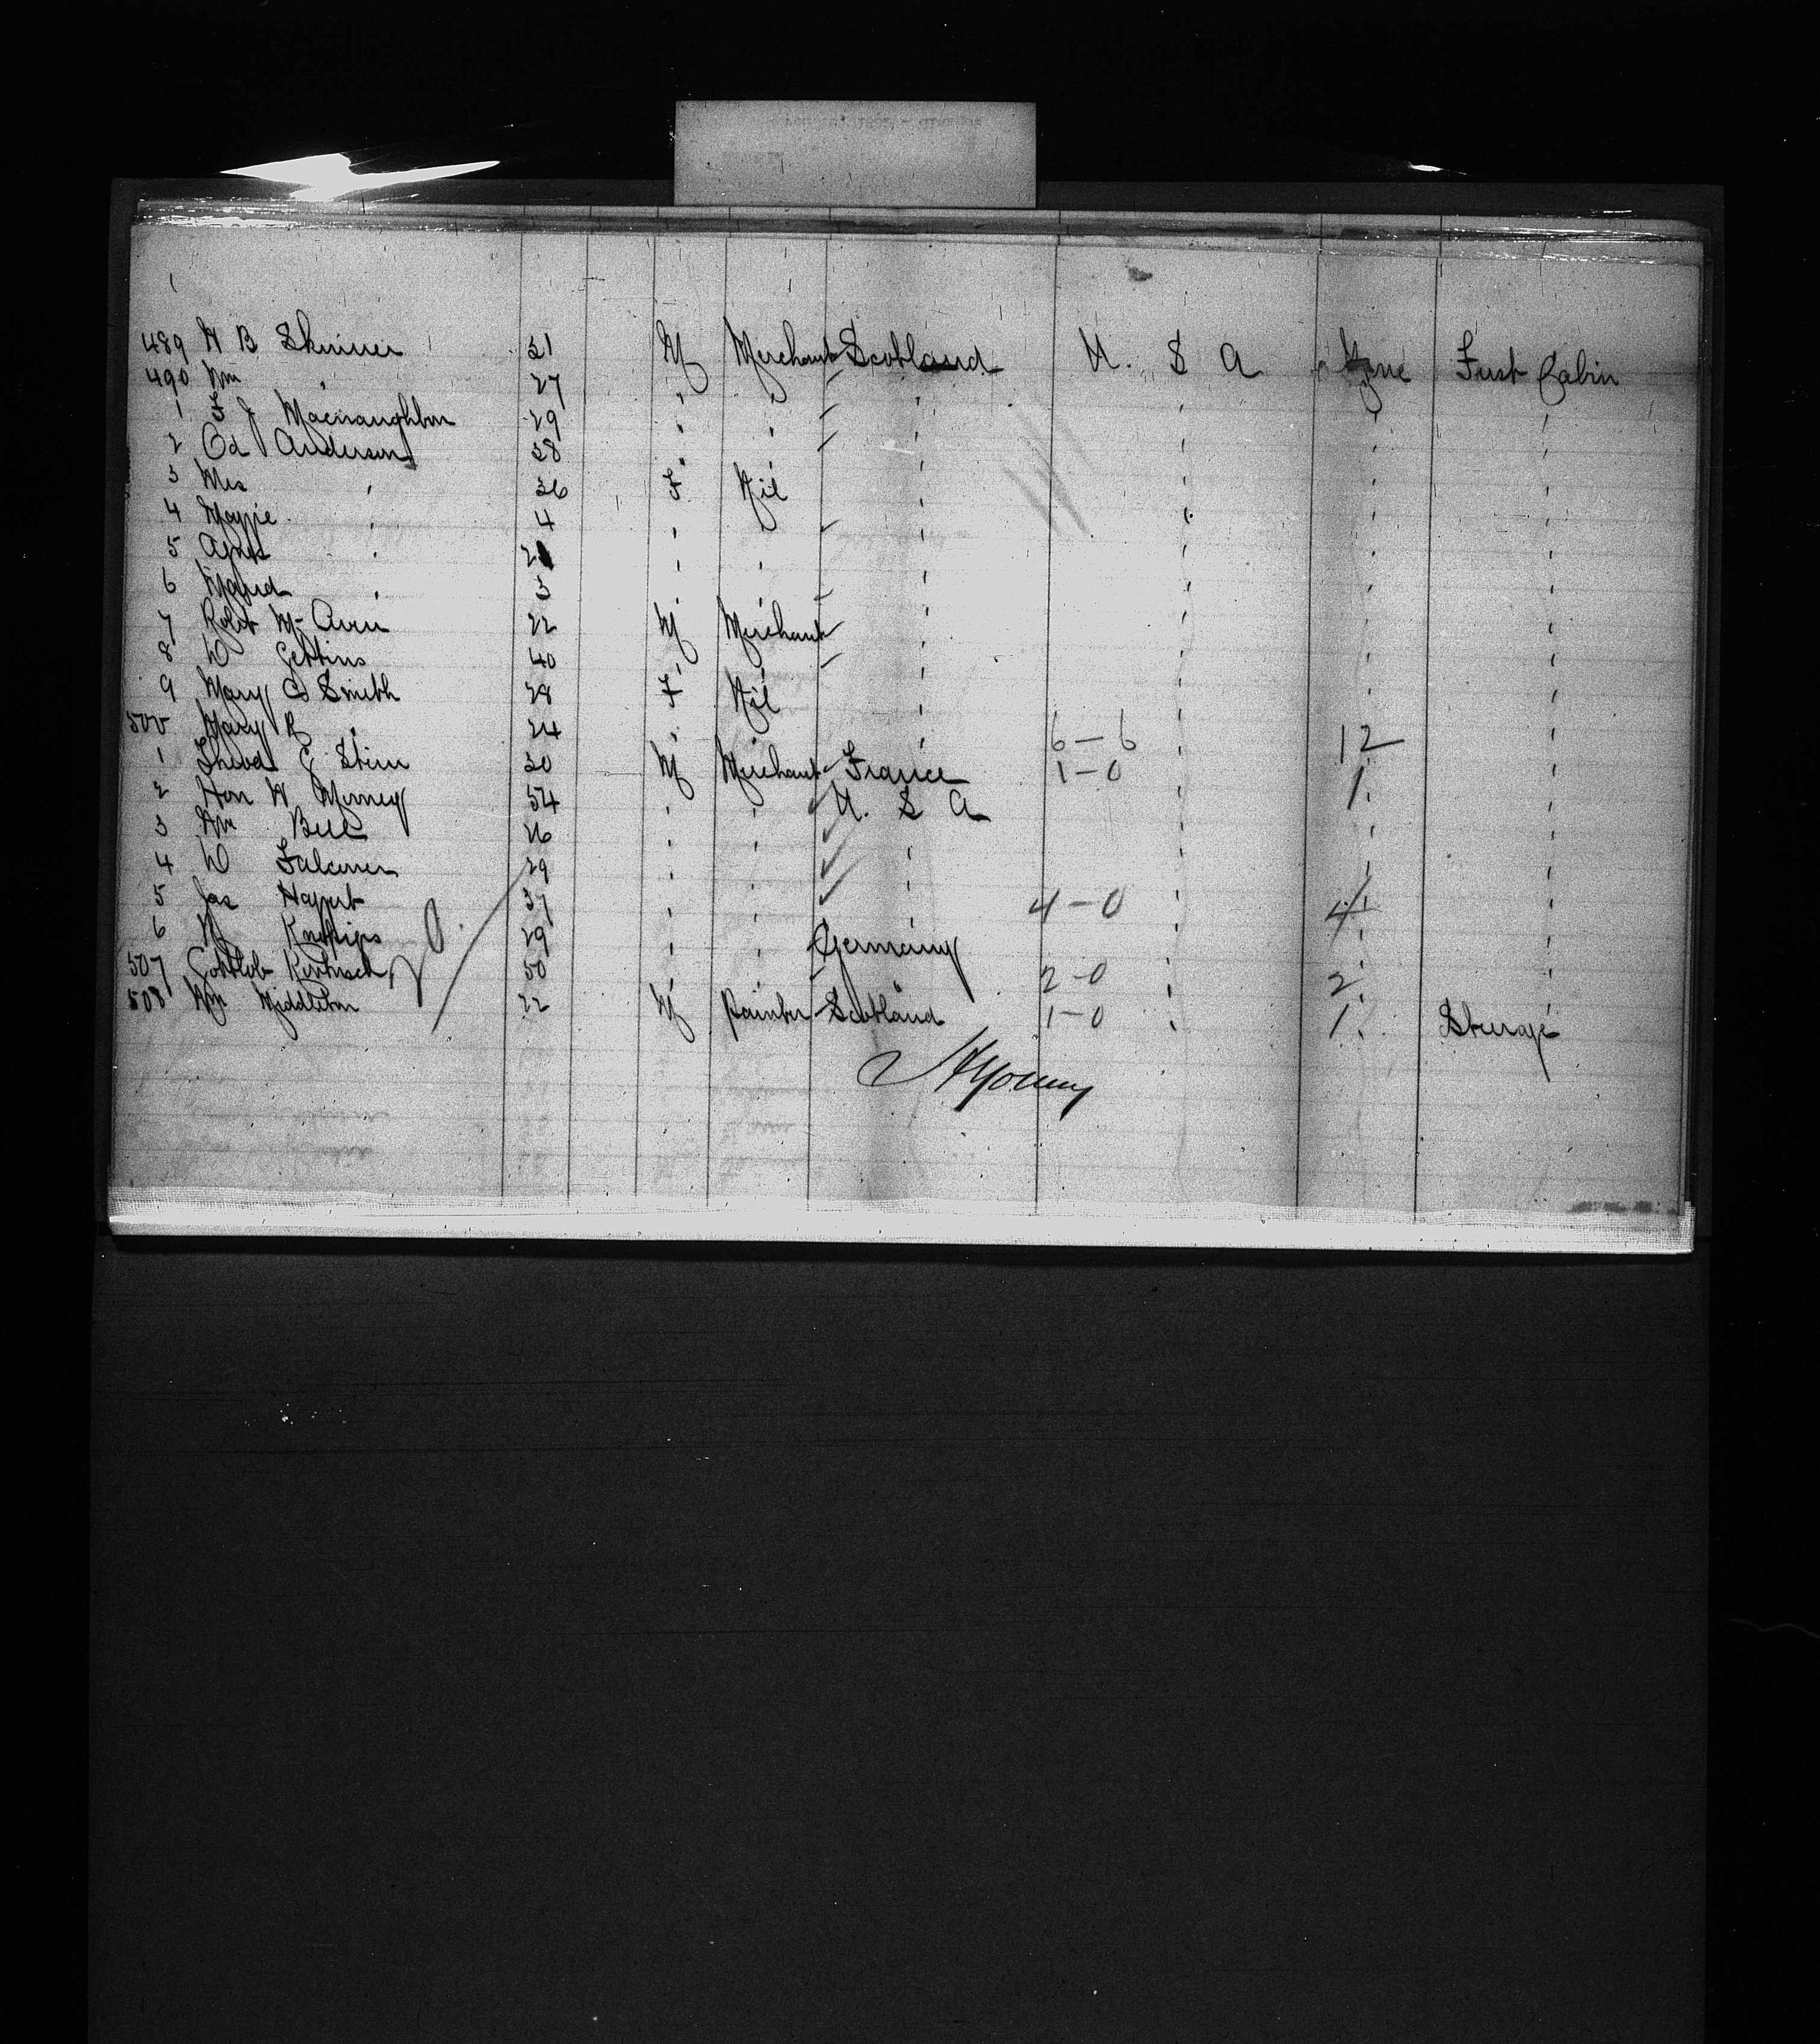 489 H B Skinner 31 M Merchant Scotland U. S A None First Cabin
490 Wm " 27 " " " " " "
1 F J Macnaughton 29 " " " " " "
2 Od Anderson 38 " " " " " "
3 Mrs " 36 F Nil " " " "
4 Maggie " 4 " " " " " "
5 Agnes " 2 " " " " " "
6 Maud " 3 " " " " " "
7 Robt Mc 22 M Merchant " " " "
8 W Gettins 40 " " " " " "
9 Mary C Smith 28 F Nil " " " "
500 Mary R " 24 " " " 6-6 " 12 "
1 Theod E Stern 30 M Merchant France 1-0 " 1 "
2 Hon W Morney 54 " " U. S A " " "
3 Wm Bell 26 " " " " " "
4 W Falconer 29 " " " " " "
5 Jas 37 " " " 4-0 " 4 "
6 29 " " Germany " " "
507 Gottlob 50 " " " 2-0 " 2 "
508 Wm Middleton 22 M Painter Scotland 1-0 " 1 Steerage
20
Young